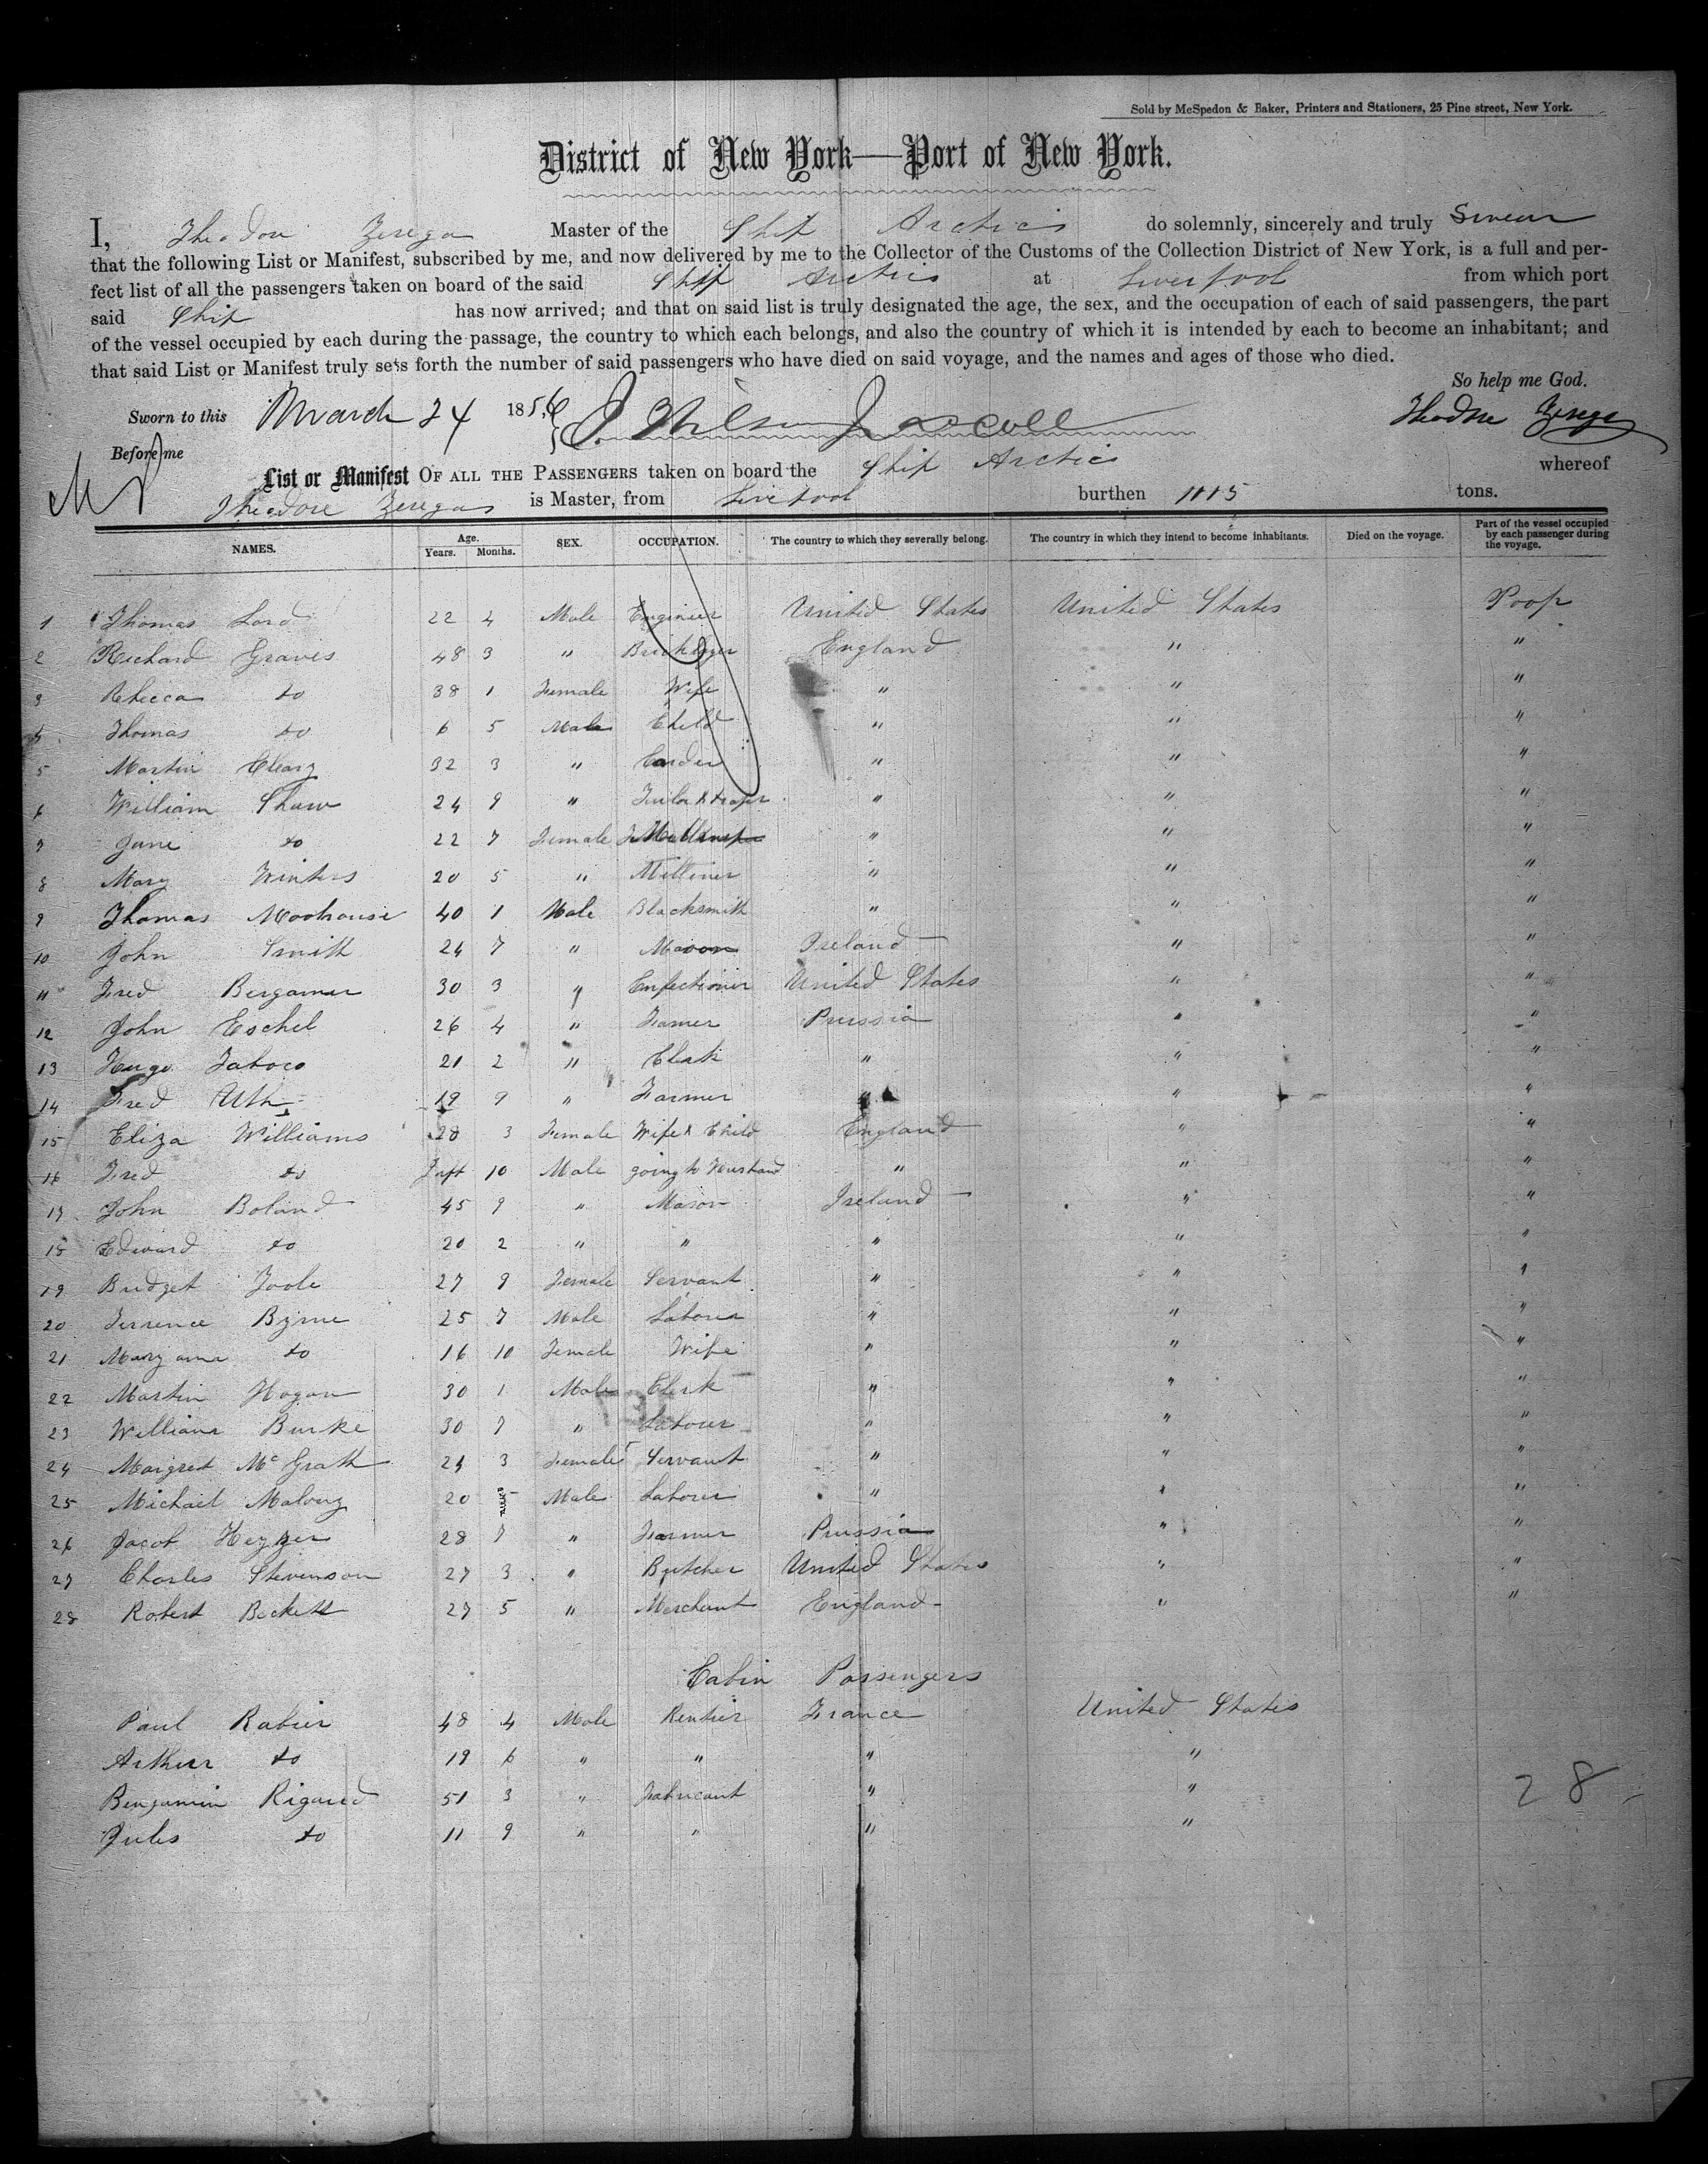 Sold by McSpedon & Baker, Printers and Stationers, 25 Pine street, New York.
District of New York—Port of New York.
I, Theodore Zerega Master of the Ship Arctic do solemnly, sincerely and truly Swear
that the following List or Manifest, subscribed by me, and now delivered by me to the Collector of the Customs of the Collection District of New York, is a full and per-
fect list of all the passengers taken on board of the said Ship Arctic at Liverpool from which port
said Ship has now arrived; and that on said list is truly designated the age, the sex, and the occupation of each of said passengers, the part
of the vessel occupied by each during the passage, the country to which each belongs, and also the country of which it is intended by each to become an inhabitant; and
that said List or Manifest truly sets forth the number of said passengers who have died on said voyage, and the names and ages of those who died.
So help me God.
Sworn to this March 24 1856 Theodore Zerega
Before me
List or Manifest OF ALL THE PASSENGERS taken on board the Ship Arctic whereof
Theodore Zerega is Master, from Liverpool burthen 1115 tons.
NAMES. Age. Years. Months. SEX. OCCUPATION. The country to which they severally belong. The country in which they intend to become inhabitants. Died on the voyage. Part of the vessel occupied by each passenger during the voyage.
1 Thomas Lord 22 4 Male Engineer United States United States Poop
2 Richard Graves 48 3 " Bricklayer England " "
3 Rebecca do 38 1 Female Wife " " "
4 Thomas do 6 5 Male Child " " "
5 Martin Cleary 32 3 " Carder " " "
6 William Shaw 24 9 " Tailor & draper " " "
7 Jane do 22 7 Female " " "
8 Mary Winters 20 5 " Milliner " " "
9 Thomas Moohouse 40 1 Male Blacksmith " " "
10 John Smith 24 7 " Mason Ireland " "
11 Fred Bergamer 30 3 " Confectioner United States " "
12 John Eschel 26 4 " Farmer Prussia " "
13 Hugo 21 2 " Clerk " " "
14 Fred Uth 19 9 " Farmer " " "
15 Eliza Williams 28 3 Female Wife & Child England " "
16 Fred do Inft 10 Male going to Husband " " "
17 John Boland 45 9 " Mason Ireland " "
18 Edward do 20 2 " " " " "
19 Bridget Toole 27 9 Female Servant " " "
20 Terrence Byrne 25 7 Male Laborer " " "
21 Mary ann do 16 10 Female Wife " " "
22 Martin Hogan 30 1 Male Clerk " " "
23 William Burke 30 7 " Labourer " " "
24 Margret McGrath 24 3 Female Servant " " "
25 Michael Malony 20 5 Male Laborer " " "
26 Jacob 28 7 " Farmer Prussia " "
27 Charles Stevenson 27 3 " Butcher United States " "
28 Robert Beckett 27 5 " Merchant England " "
Cabin Passengers
Paul Rabier 48 4 Male Rentier France United States
Arthur do 19 6 " " " "
Benjamin Rigaud 51 3 " Fabricant " "
28
Jules do 11 9 " " " "